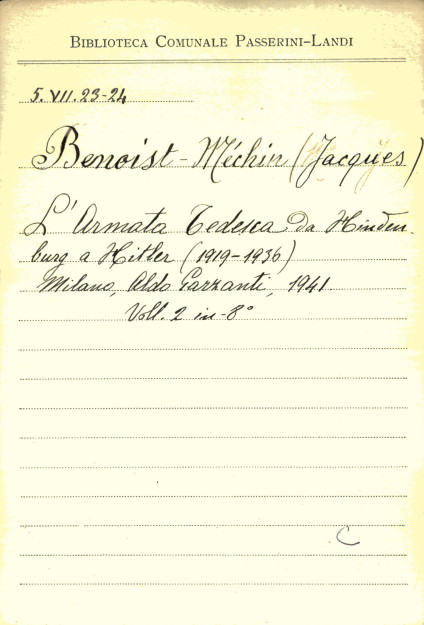 BIBLIOTECA COMUNALE PASSERINI-LANDI
5.VII.23-24
Benoist-Méchin (Jacques)
L'Armata Tedesca da Hinden-
burg a Hitler (1919-1936)
Milano, Aldo Garzanti, 1941
Voll. 2 in-8°
C